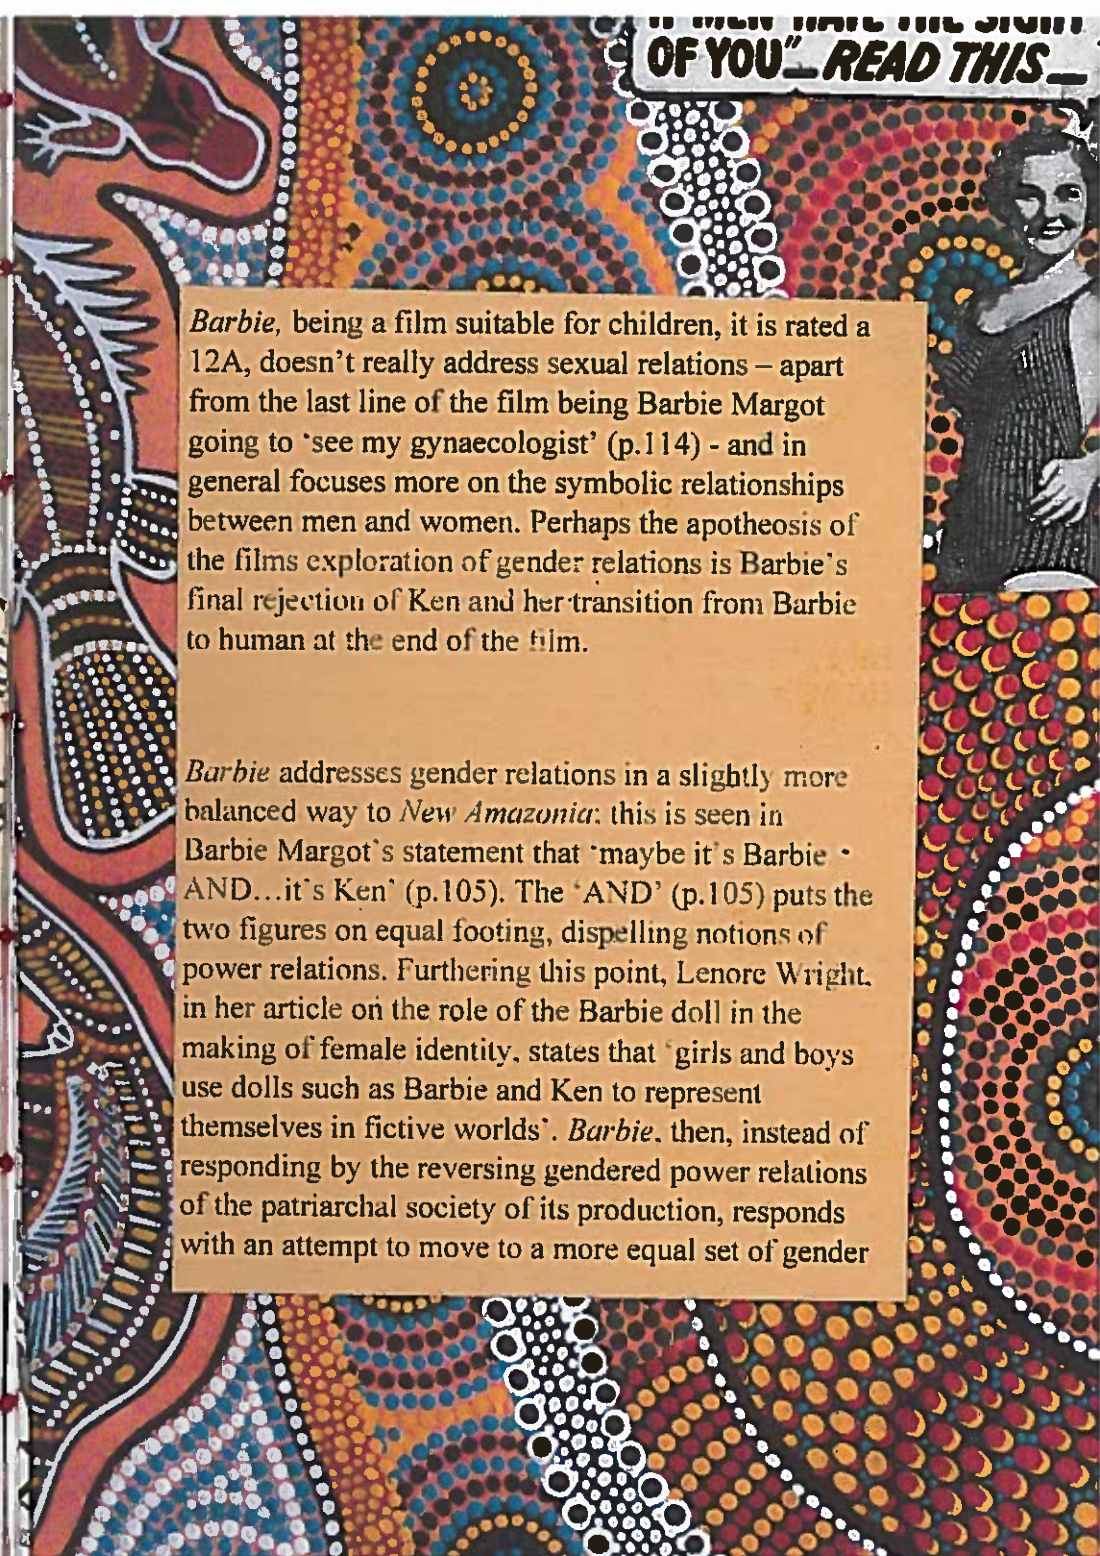 OF YOU" READ THIS
Barbie, being a film suitable for children, it is rated a
12A, doesn't really address sexual relations – apart
from the last line of the film being Barbie Margot
going to 'see my gynaecologist' (p.114) - and in
general focuses more on the symbolic relationships
between men and women. Perhaps the apotheosis of
the films exploration of gender relations is Barbie's
final rejection of Ken and her transition from Barbie
to human at the end of the film.
Barbie addresses gender relations in a slightly more
balanced way to New Amazonia: this is seen in
Barbie Margot's statement that 'maybe it's Barbie
AND…it's Ken' (p.105). The 'AND' (p.105) puts the
two figures on equal footing, dispelling notions of
power relations. Furthering this point, Lenore Wright,
in her article on the role of the Barbie doll in the
making of female identity, states that 'girls and boys
use dolls such as Barbie and Ken to represent
themselves in fictive worlds'. Barbie, then, instead of
responding by the reversing gendered power relations
of the patriarchal society of its production, responds
with an attempt to move to a more equal set of gender